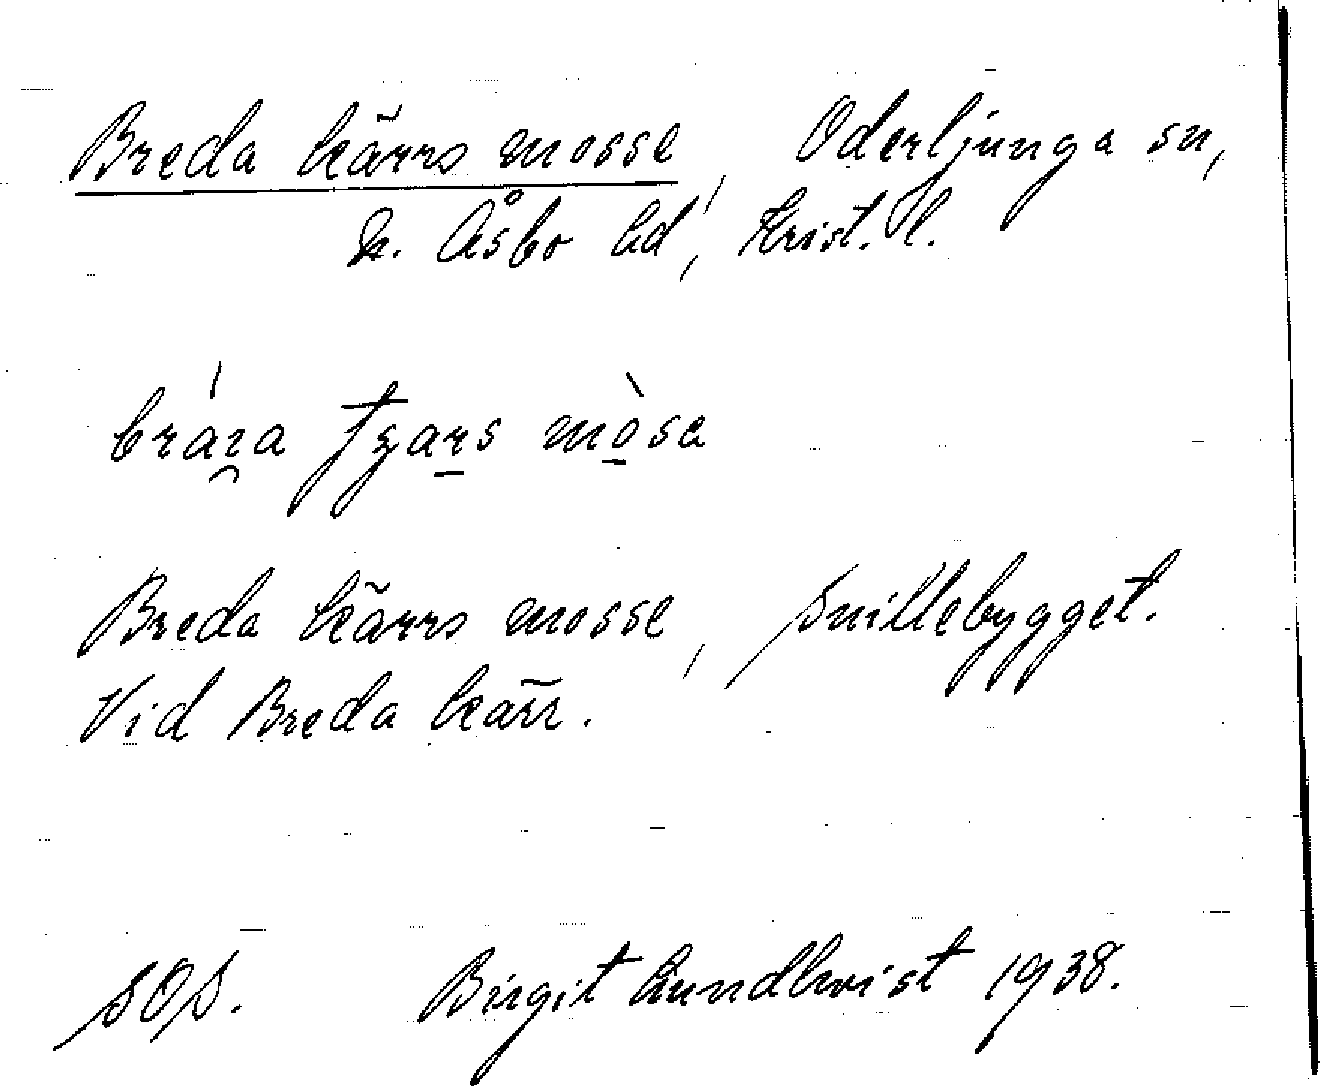 Breda kärrs mosse, Oderljunga sn,
N. Åsbo hd, Krist. l.
Breda kärrs mosse, Snillebygget.
Vid Breda kärr.
SOS. Birgit Lundkvist 1938.